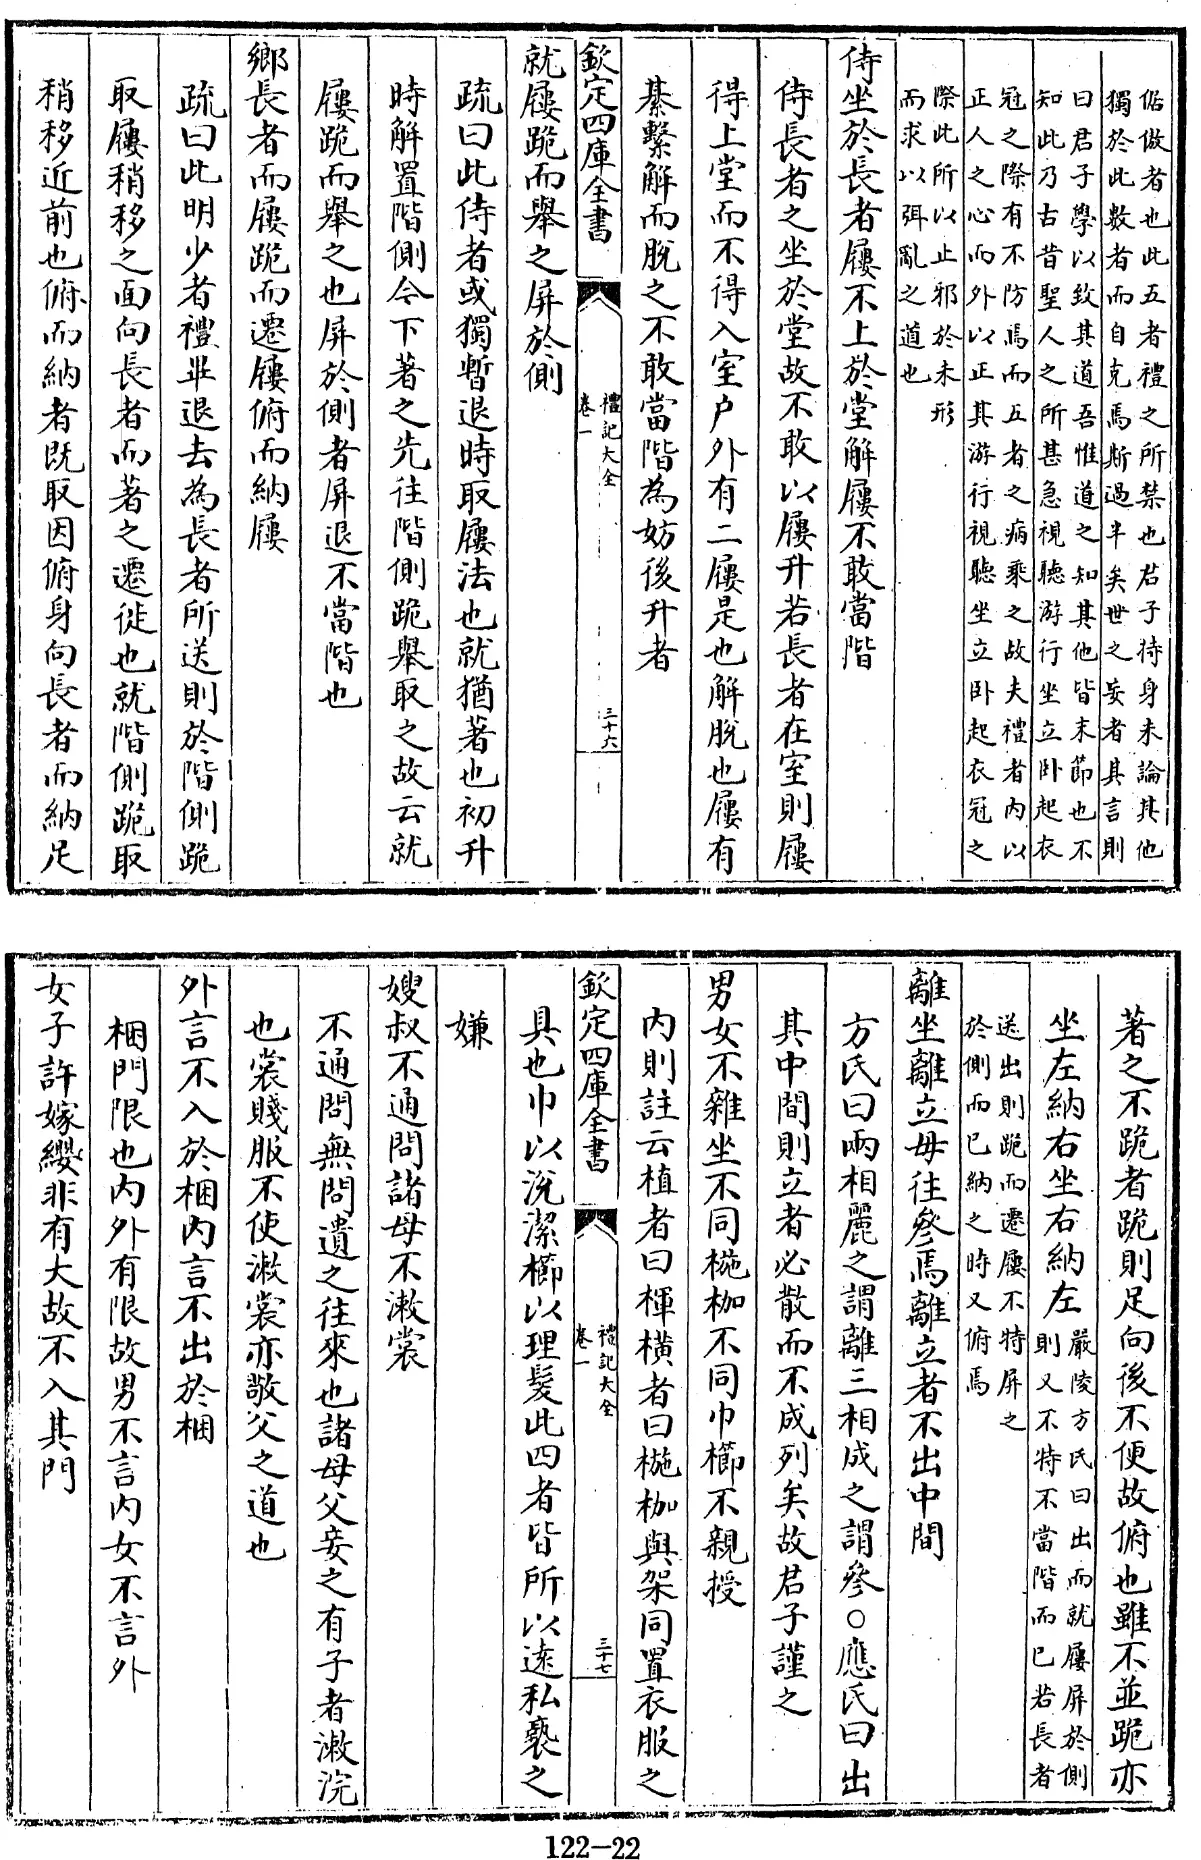 倨傲者也此五者禮之所禁也君子持身未論其他
獨於此數者而自克焉斯過半矣世之妄者其言則
曰君子學以致其道吾惟道之知其他皆末節也不
知此乃古昔聖人之所甚急視聽游行坐立卧起衣
冠之際有不防焉而五者之病乘之故夫禮者内以
正人之心而外以正其游行視聽坐立卧起衣冠之
際此所以止邪於未形
而求以弭亂之道也
侍坐於長者屨不上於堂解屨不敢當階
侍長者之坐於堂故不敢以屨升若長者在室則屨
得上堂而不得入室户外有二屨是也解脱也屨有
綦繫解而脱之不敢當階為妨後升者
欽定四庫全書
禮記大全
卷一
三十六
就屨跪而舉之屏於側
疏曰此侍者或獨暫退時取屨法也就猶著也初升
時解置階側今下著之先往階側跪舉取之故云就
屨跪而舉之也屏於側者屏退不當階也
鄉長者而屨跪而遷屨俯而納屨
疏曰此明少者禮畢退去為長者所送則於階側跪
取屨稍移之面向長者而著之遷徙也就階側跪取
稍移近前也俯而納者既取因俯身向長者而納足
著之不跪者跪則足向後不便故俯也雖不並跪亦
坐左納右坐右納左
嚴陵方氏曰出而就屨屏於側
則又不特不當階而已若長者
送出則跪而遷屨不特屏之
於側而已納之時又俯焉
離坐離立毋往參焉離立者不出中間
方氏曰兩相麗之謂離三相成之謂參○應氏曰出
其中間則立者必散而不成列矣故君子謹之
男女不雜坐不同椸枷不同巾櫛不親授
内則註云植者曰楎横者曰椸枷與架同置衣服之
欽定四庫全書
禮記大全
卷一
三十七
具也巾以涗潔櫛以理髮此四者皆所以遠私褻之
嫌
嫂叔不通問諸母不漱裳
不通問無問遺之往來也諸母父妾之有子者漱浣
也裳賤服不使漱裳亦敬父之道也
外言不入於梱内言不出於梱
梱門限也内外有限故男不言内女不言外
女子許嫁纓非有大故不入其門
122-22